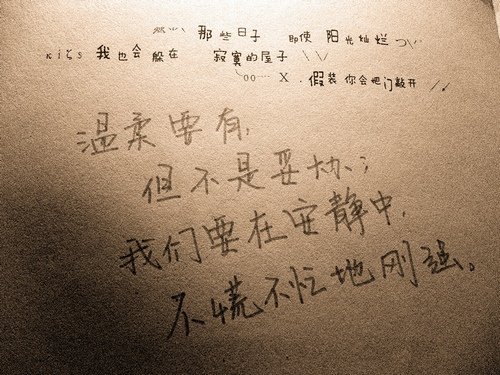 那些日子 即使 阳光灿烂
我也会 躲在 寂寞的屋子
X . 假装 你会把门敲开
温柔要有,
但不是妥协;
我们要在安静中,
不慌不忙地刚强。